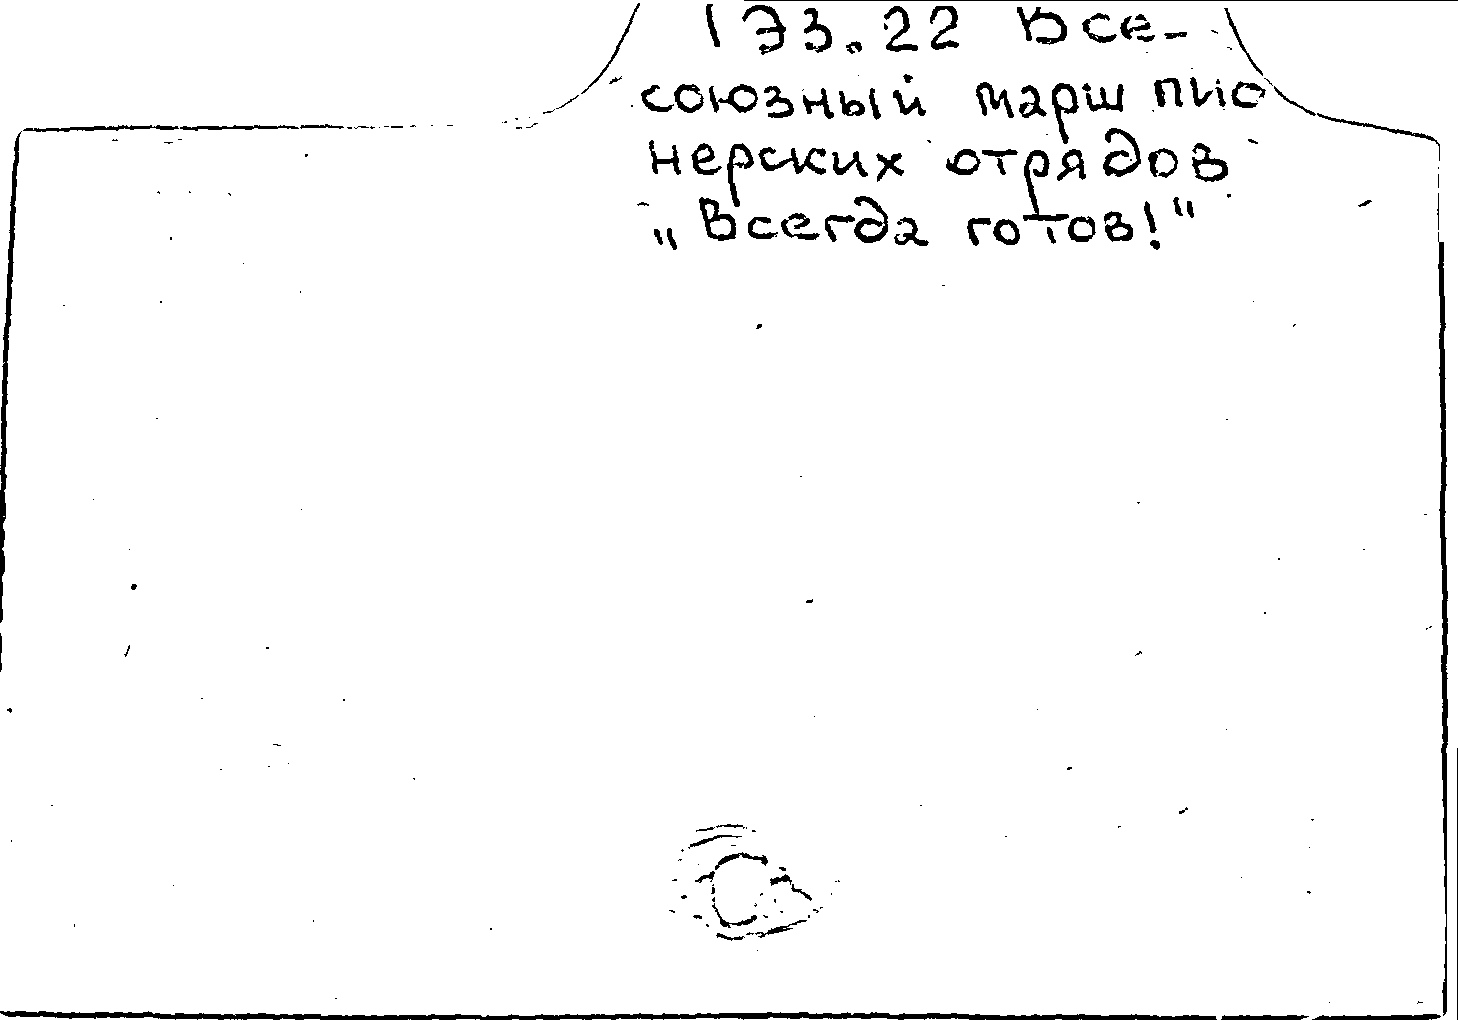 1Э3.22 Все-
союзный марш пио
нерских отрядов
„Всегда готов!"